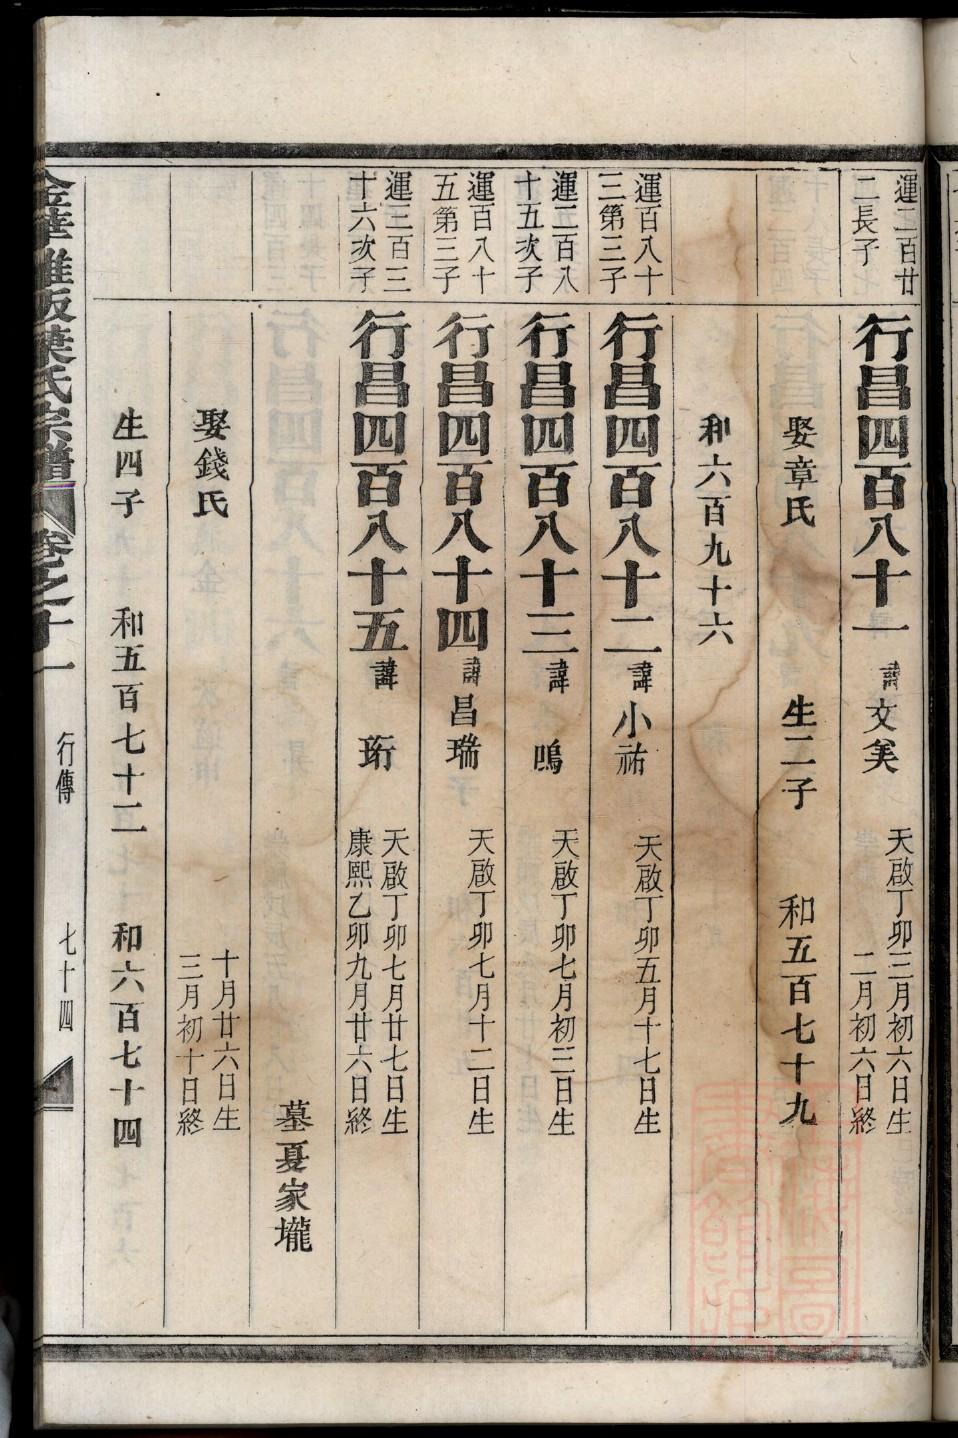 運三百廿
二長子
行昌四百八十一
諱文
天啟丁卯三月初六日生
二月初六日終
娶章氏 生二子 和五百七十九
和六百九十六
運百八十
三第三子
行昌四百八十二
諱小祐
天啟丁卯五月十七日生
運三百八
十五次子
行昌四百八十三
諱鳴
天啟丁卯七月初三日生
運百八十
五第三子
行昌四百八十四
諱昌瑞
天啟丁卯七月十二日生
運三百三
十六次子
行昌四百八十五
諱珩
天啟丁卯七月廿七日生
康熙乙卯九月廿六日終
墓夏家壠
娶錢氏
十月廿六日生
三月初十日終
生四子 和五百七十二 和六百七十四
金華雅畈葉氏宗譜 卷之十一 行傳 七十四